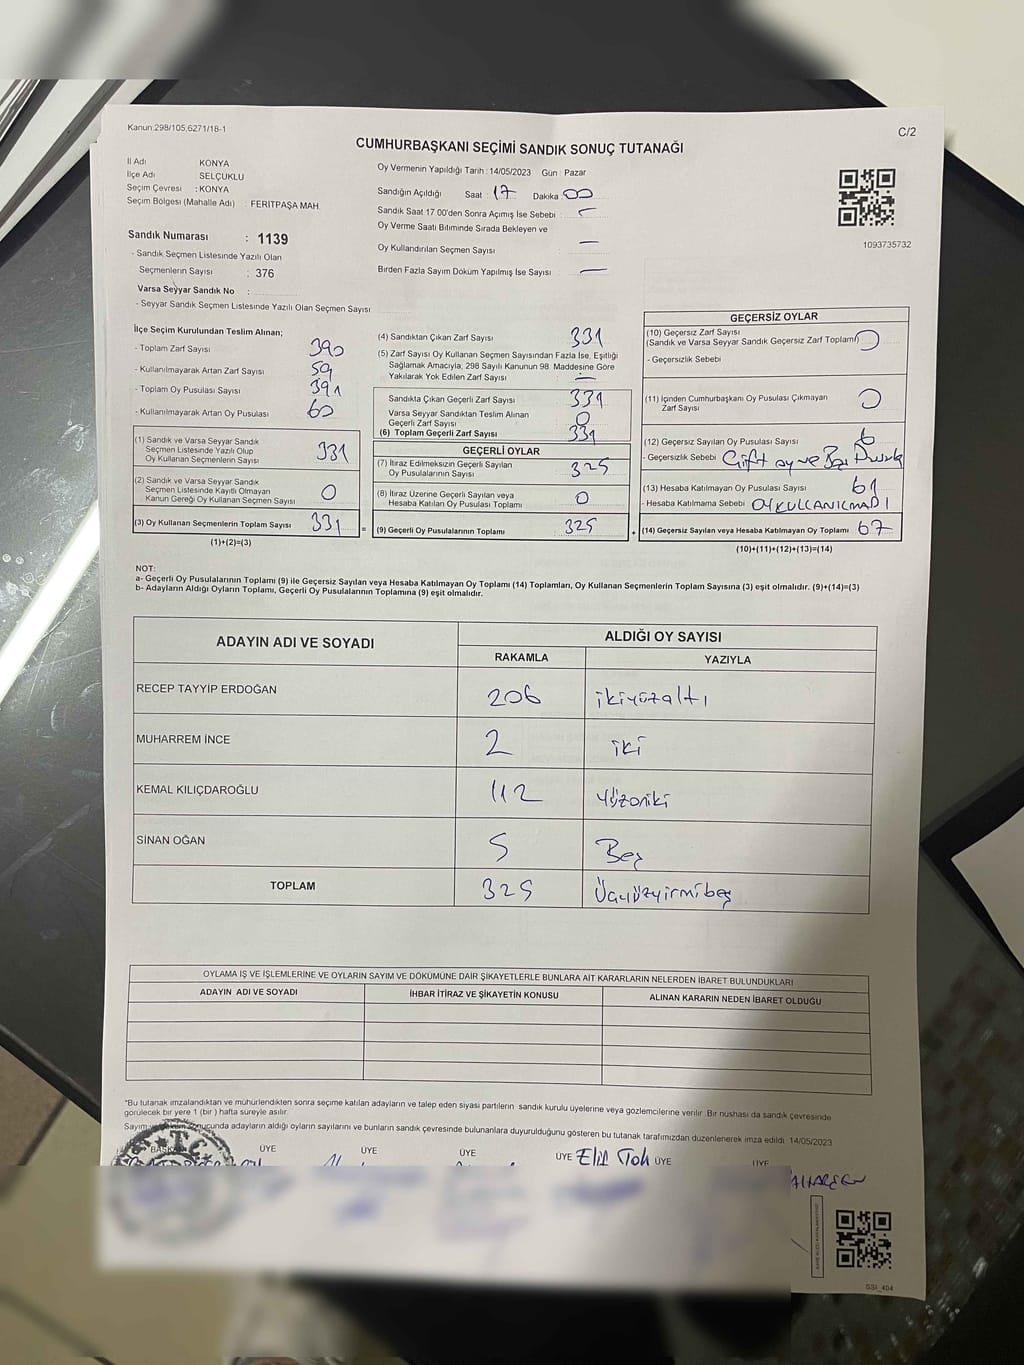 Kanun:298/105,6271/18-1
C/2
CUMHURBAŞKANI SEÇİMİ SANDIK SONUÇ TUTANAĞI
İl Adı KONYA
İlçe Adı SELÇUKLU
Seçim Çevresi : KONYA
Seçim Bölgesi (Mahalle Adı) : FERİTPAŞA MAH.
Sandık Numarası : 1139
- Sandık Seçmen Listesinde Yazılı Olan
Seçmenlerin Sayısı : 376
Varsa Seyyar Sandık No :
- Seyyar Sandık Seçmen Listesinde Yazılı Olan Seçmen Sayısı
Oy Vermenin Yapıldığı Tarih : 14/05/2023 Gün : Pazar
Sandığın Açıldığı Saat : 17 Dakika : 00
Sandık Saat 17 00'den Sonra Açımış İse Sebebi : -
Oy Verme Saati Bitiminde Sırada Bekleyen ve
Oy Kullandırılan Seçmen Sayısı —
Birden Fazla Sayım Döküm Yapılmış İse Sayısı —
1093735732
İlçe Seçim Kurulundan Teslim Alınan;
- Toplam Zarf Sayısı 390
- Kullanılmayarak Artan Zarf Sayısı 59
- Toplam Oy Pusulası Sayısı 391
- Kullanılmayarak Artan Oy Pusulası 60
(1) Sandık ve Varsa Seyyar Sandık
Seçmen Listesinde Yazılı Olup
Oy Kullanan Seçmenlerin Sayısı 331
(2) Sandık ve Varsa Seyyar Sandık
Seçmen Listesinde Kayıtlı Olmayan
Kanun Gereği Oy Kullanan Seçmen Sayısı 0
(3) Oy Kullanan Seçmenlerin Toplam Sayısı 331
(1)+(2)=(3)
(4) Sandıktan Çıkan Zarf Sayısı 331
(5) Zarf Sayısı Oy Kullanan Seçmen Sayısından Fazla İse, Eşitliği
Sağlamak Amacıyla, 298 Sayılı Kanunun 98. Maddesine Göre
Yakılarak Yok Edilen Zarf Sayısı —
Sandıkta Çıkan Geçerli Zarf Sayısı 331
Varsa Seyyar Sandıktan Teslim Alınan
Geçerli Zarf Sayısı 0
(6) Toplam Geçerli Zarf Sayısı 331
GEÇERLİ OYLAR
(7) İtiraz Edilmeksizin Geçerli Sayılan
Oy Pusulalarının Sayısı 325
(8) İtiraz Üzerine Geçerli Sayılan veya
Hesaba Katılan Oy Pusulaları Toplamı 0
= (9) Geçerli Oy Pusulalarının Toplamı 325
GEÇERSİZ OYLAR
(10) Geçersiz Zarf Sayısı
(Sandık ve Varsa Seyyar Sandık Geçersiz Zarf Toplamı) 0
- Geçersizlik Sebebi
(11) İçinden Cumhurbaşkanı Oy Pusulası Çıkmayan
Zarf Sayısı 0
(12) Geçersiz Sayılan Oy Pusulası Sayısı 6
- Geçersizlik Sebebi Çift oy ve Boş Pusula
(13) Hesaba Katılmayan Oy Pusulası Sayısı 61
- Hesaba Katılmama Sebebi OY KULLANILMADI
+ (14) Geçersiz Sayılan veya Hesaba Katılmayan Oy Toplamı 67
(10)+(11)+(12)+(13)=(14)
NOT:
a- Geçerli Oy Pusulalarının Toplamı (9) ile Geçersiz Sayılan veya Hesaba Katılmayan Oy Toplamı (14) Toplamları, Oy Kullanan Seçmenlerin Toplam Sayısına (3) eşit olmalıdır. (9)+(14)=(3)
b- Adayların Aldığı Oyların Toplamı, Geçerli Oy Pusulalarının Toplamına (9) eşit olmalıdır.
ADAYIN ADI VE SOYADI ALDIĞI OY SAYISI
RAKAMLA YAZIYLA
RECEP TAYYİP ERDOĞAN 206 ikiyüzaltı
MUHARREM İNCE 2 iki
KEMAL KILIÇDAROĞLU 112 Yüzoniki
SİNAN OĞAN 5 Beş
TOPLAM 325 Üçyüzyirmibeş
OYLAMA İŞ VE İŞLEMLERİNE VE OYLARIN SAYIM VE DÖKÜMÜNE DAİR ŞİKAYETLERLE BUNLARA AİT KARARLARIN NELERDEN İBARET BULUNDUKLARI
ADAYIN ADI VE SOYADI İHBAR İTİRAZ VE ŞİKAYETİN KONUSU ALINAN KARARIN NEDEN İBARET OLDUĞU
*Bu tutanak imzalandıktan ve mühürlendikten sonra seçime katılan adayların ve talep eden siyasi partilerin sandık kurulu üyelerine veya gözlemcilerine verilir. Bir nüshası da sandık çevresinde
görülecek bir yere 1 (bir ) hafta süreyle asılır.
Sayım sonucunda adayların aldığı oyların sayılarını ve bunların sandık çevresinde bulunanlara duyurulduğunu gösteren bu tutanak tarafımızdan düzenlenerek imza edildi. 14/05/2023
BAŞKAN ÜYE ÜYE ÜYE ÜYE ÜYE ÜYE
Elif Tok
SSI_404